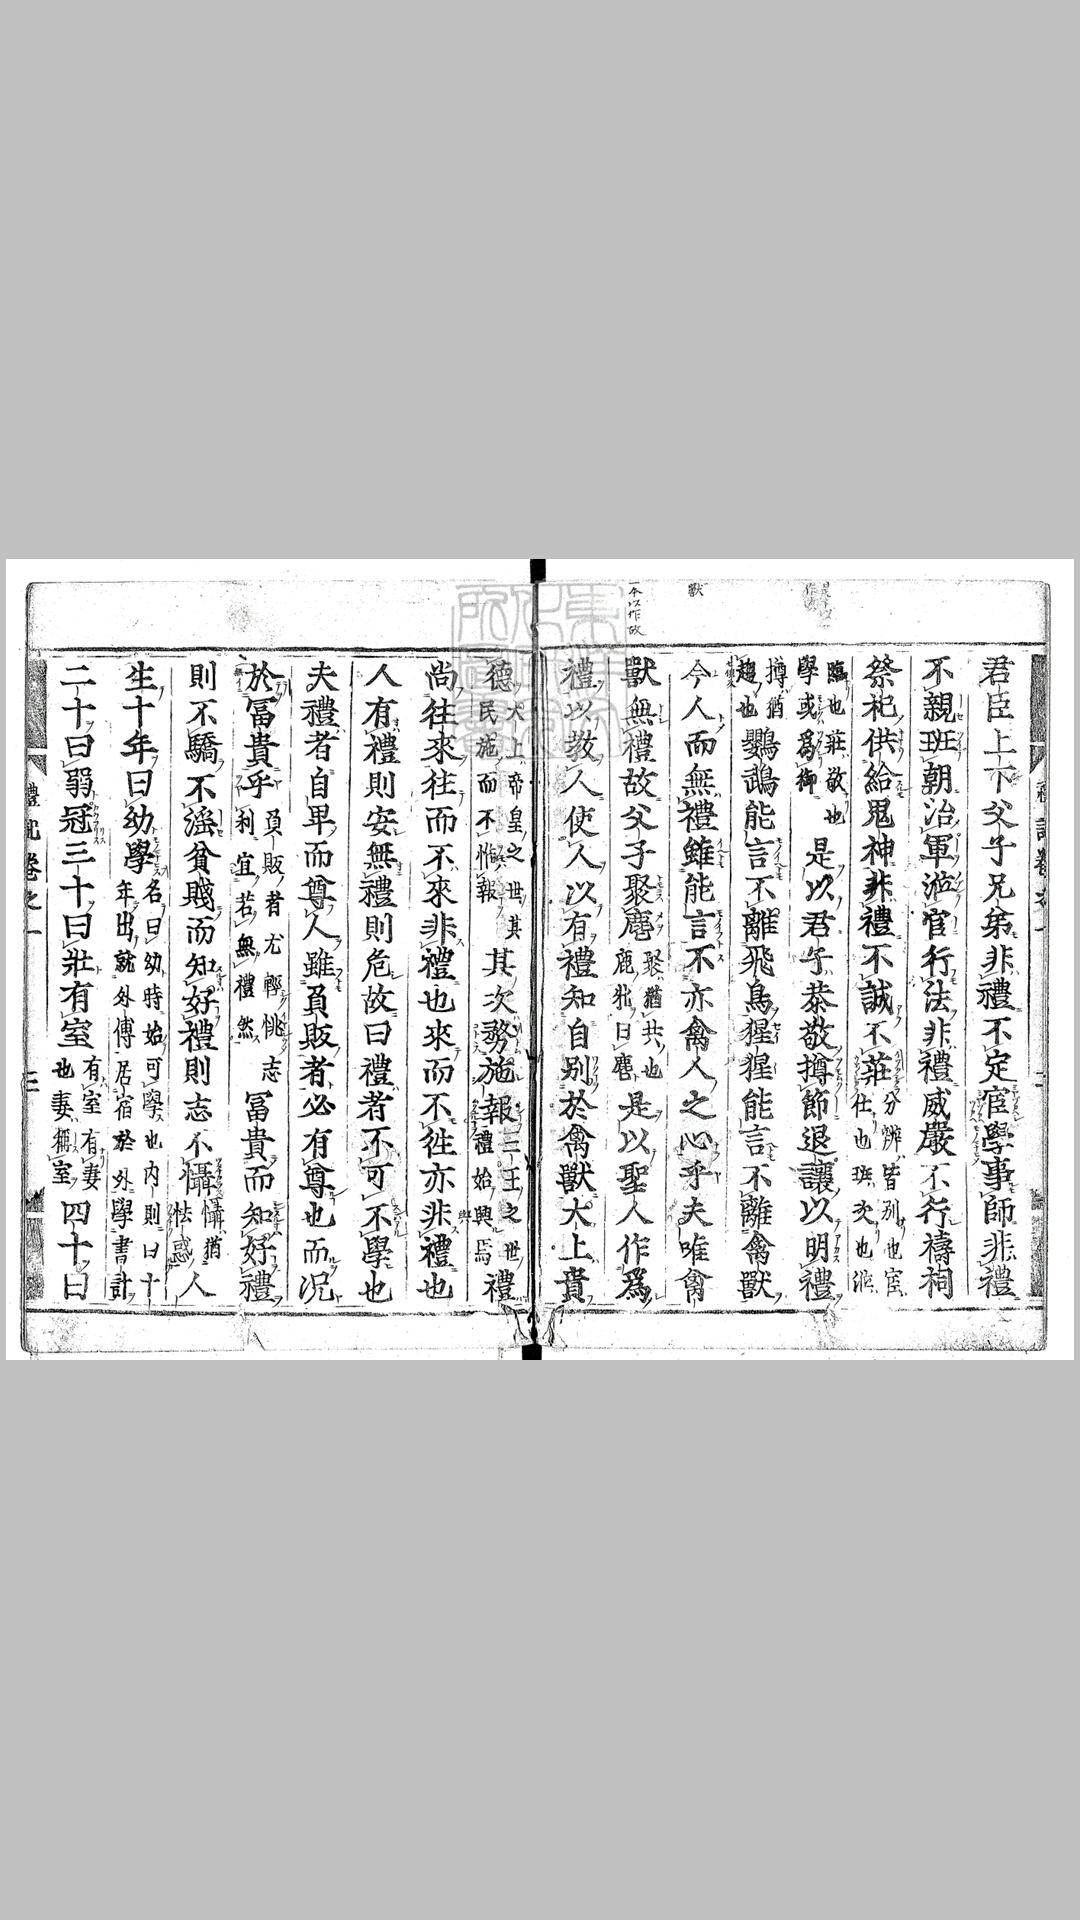 君臣上下父子兄弟非禮不定宦學事師非禮
不親班朝治軍涖官行法非禮威嚴不行禱祠
祭祀供給鬼神非禮不誠不莊
分辨皆別也宦
仕也班次也涖
臨也莊敬也
學或爲御
是以君子恭敬撙節退讓以明禮
撙猶
趨也
鸚鵡能言不離飛鳥猩猩能言不離禽獸
今人而無禮雖能言不亦禽人之心乎夫唯禽
獸無禮故父子聚麀
聚猶共也
鹿牝曰麀
是以聖人作爲
禮以教人使人以有禮知自別於禽獸大上貴
德
大上帝皇之世其
民施而不惟報
其次務施報
三王之世
禮始興焉
禮
尚往來往而不來非禮也來而不往亦非禮也
人有禮則安無禮則危故曰禮者不可不學也
夫禮者自卑而尊人雖負販者必有尊也而況
於冨貴乎
負販者尤輕恌志
利宜若無禮然
冨貴而知好禮
則不驕不滛貧賤而知好禮則志不懾
懾猶
怯惑
人
生十年曰幼學
名曰幼時始可學也内則曰十
年出就外傅居宿於外學書計
二十曰弱冠三十曰壯有室
有室有妻
也妻稱室
四十曰
獸
一本以作故
禮記卷之一